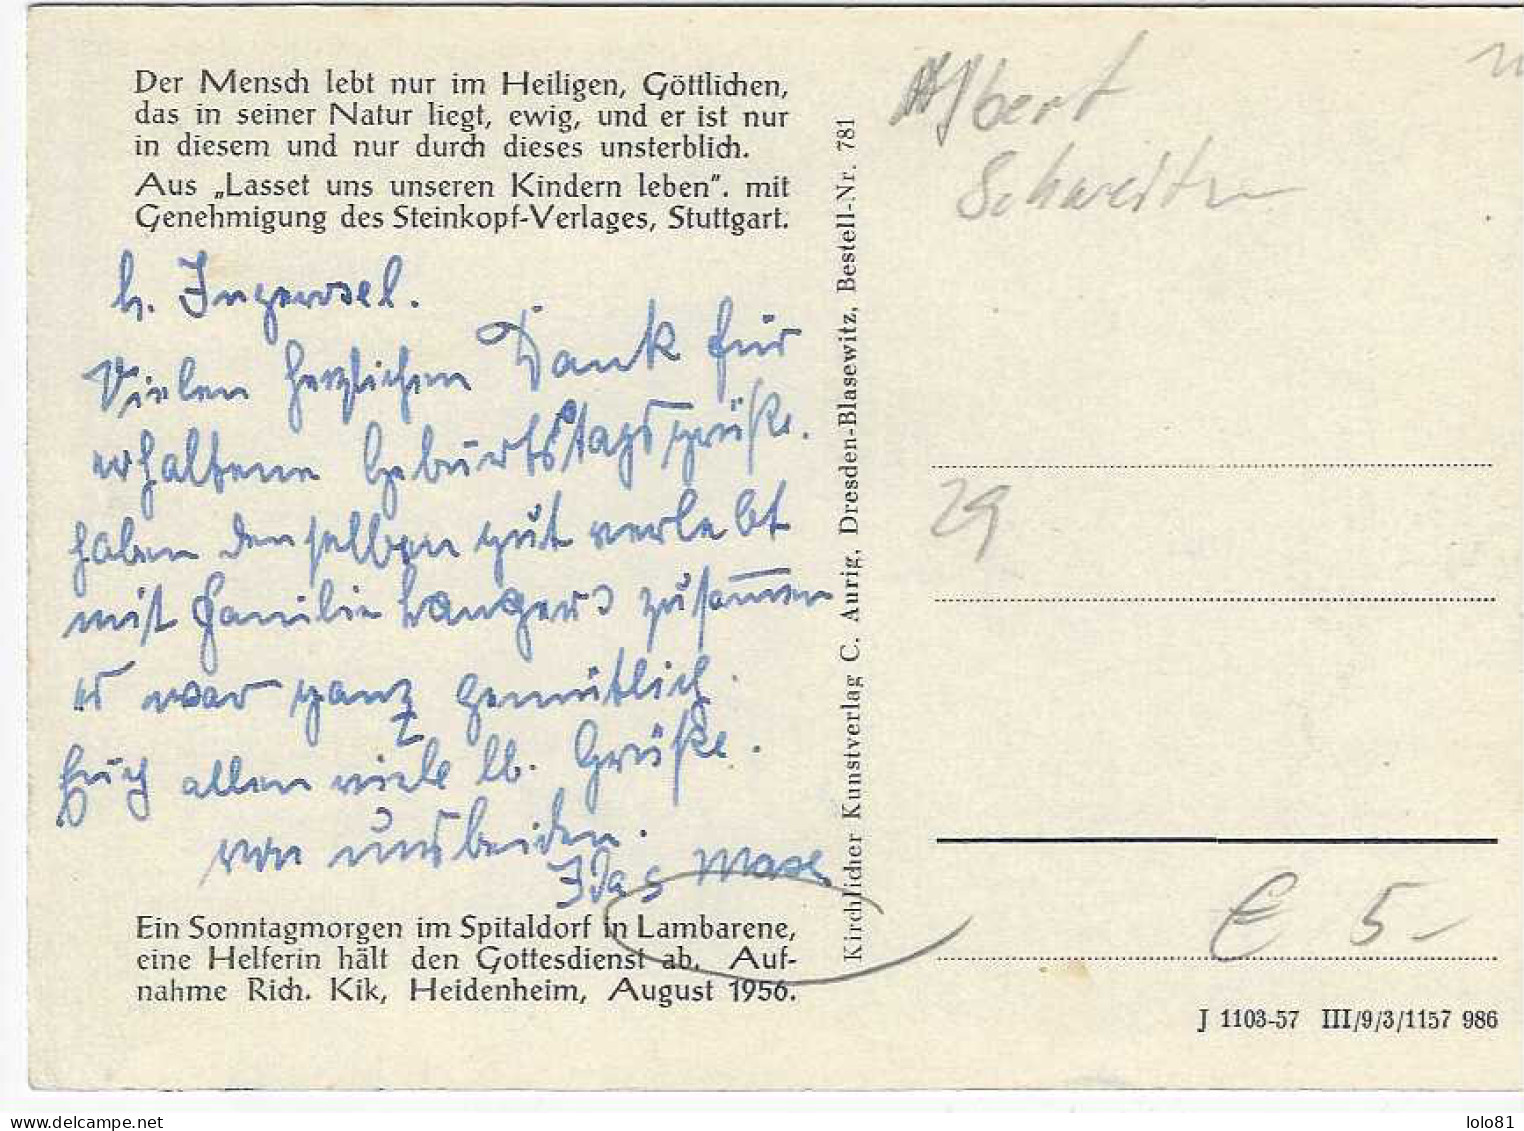 Der Mensch lebt nur im Heiligen, Göttlichen,
das in seiner Natur liegt, ewig, und er ist nur
in diesem und nur durch dieses unsterblich.
Aus „Lasset uns unseren Kindern leben". mit
Genehmigung des Steinkopf-Verlages, Stuttgart.
Vielen herzlichen Dank für
erhaltene Geburtstagsgrüße.
haben denselben gut verlebt
mit Familie zusammen
es war ganz gemütlich.
Euch allen viele lb. Grüße.
von uns beiden.
Ein Sonntagmorgen im Spitaldorf in Lambarene,
eine Helferin hält den Gottesdienst ab. Auf-
nahme Rich. Kik, Heidenheim, August 1956.
Kirchlicher Kunstverlag C. Aurig, Dresden-Blasewitz, Bestell-Nr. 781
Albert
29
€ 5-
J 1103-57 III/9/3/1157 986
delcampe.net
lolo81